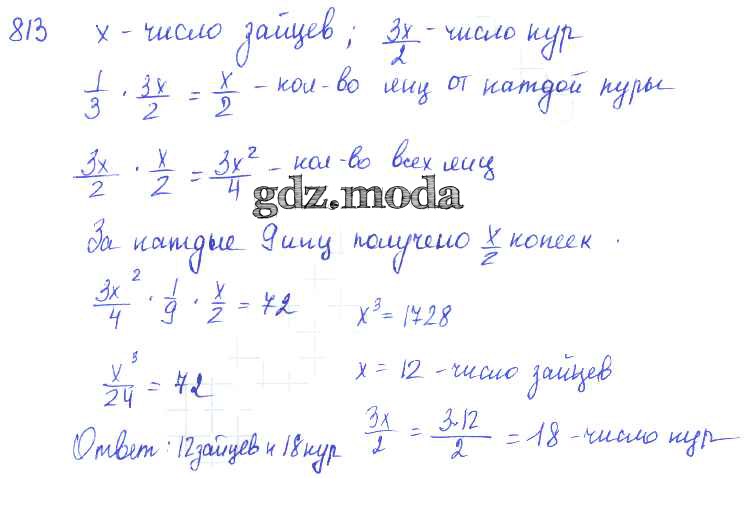 813 x - число зайцев; 3x/2 - число кур
1/3 · 3x/2 = x/2 - кол-во яиц от каждой куры
3x/2 · x/2 = 3x²/4 - кол-во всех яиц
gdz.moda
За каждые 9 яиц получено x/2 копеек.
3x²/4 · 1/9 · x/2 = 72
x³ = 1728
x³/24 = 72
x = 12 - число зайцев
3x/2 = 3·12/2 = 18 - число кур
Ответ: 12 зайцев и 18 кур